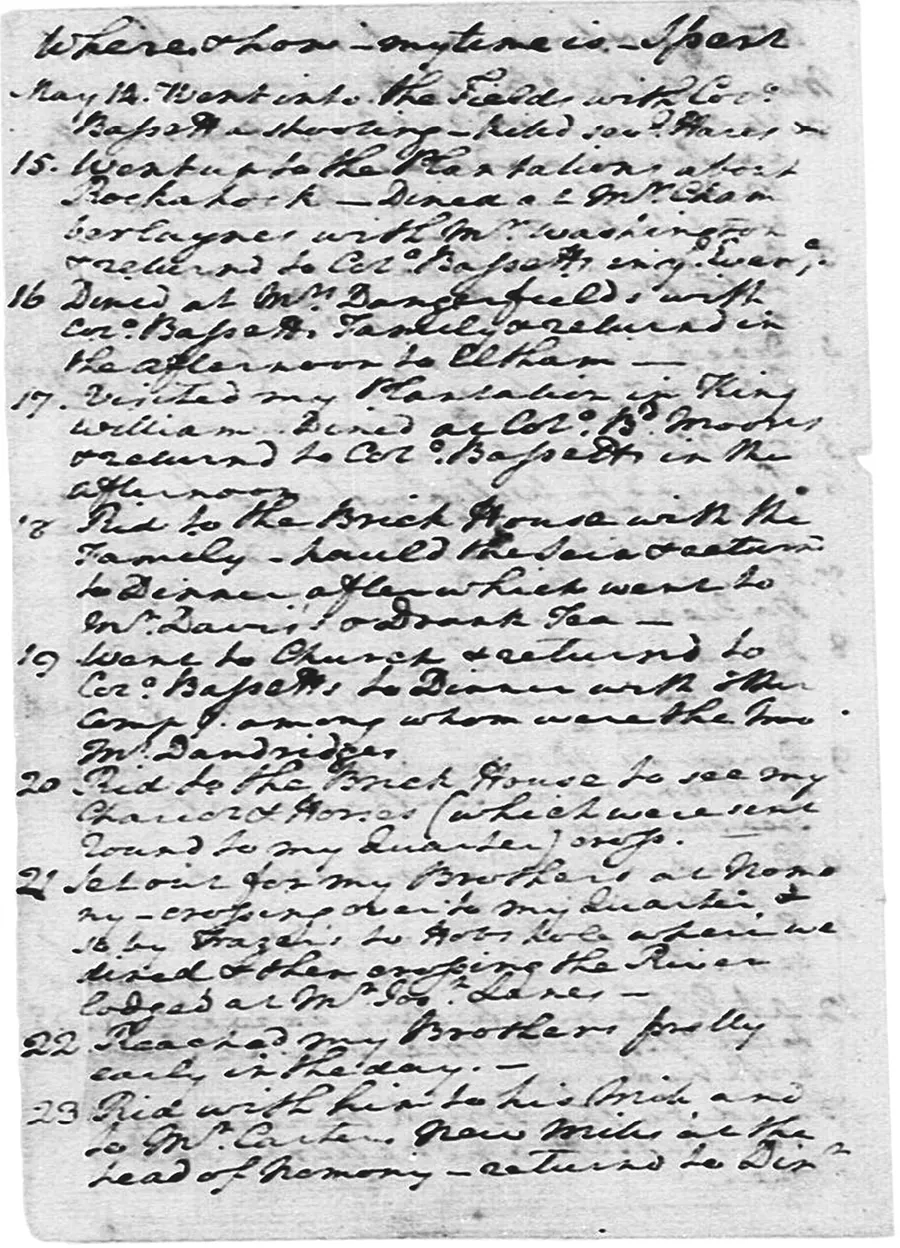 Where & how - my time is - Spent
May 14. Went into the Fields with Colo.
Bassett a shooting - killd sevl. Hares &
15. Went up to the Plantations about
Rockahock - Dined at Mr. Cham
berlaynes with Mr. Washington
& returnd to Colo. Bassetts in ye. Eveng.
16 Dined at Mrs. Dangerfields with
Colo. Bassetts Family & returnd in
the afternoon to Eltham -
17. Visited my Plantation in King
William. Dined at Colo. Bd. Moores
& returnd to Colo. Bassetts in the
afternoon
18 Rid to the Brick House with the
Family - hauld the Sein & returnd
to Dinner after which went to
Mr. Davis's & Drank Tea -
19 Went to Church & returnd to
Colo. Bassetts to Dinner with other
Compy. among whom were the two
Mr. Dandridges
20 Rid to the Brick House to see my
Chariot & Horses (which were sent
round to my Quarter) cross. -
21 Set out for my Brothers at Nomo
ny - crossing over to my Quarter &
so by Frazers to Hobs hole where we
dined & then crossing the River
lodged at Mr. Jos. Lanes -
22 Reached my Brothers pretty
early in the day. -
23 Rid with him to his Mill and
to Mr. Carters New Mills at the
head of Nomony - returnd to Dinr.